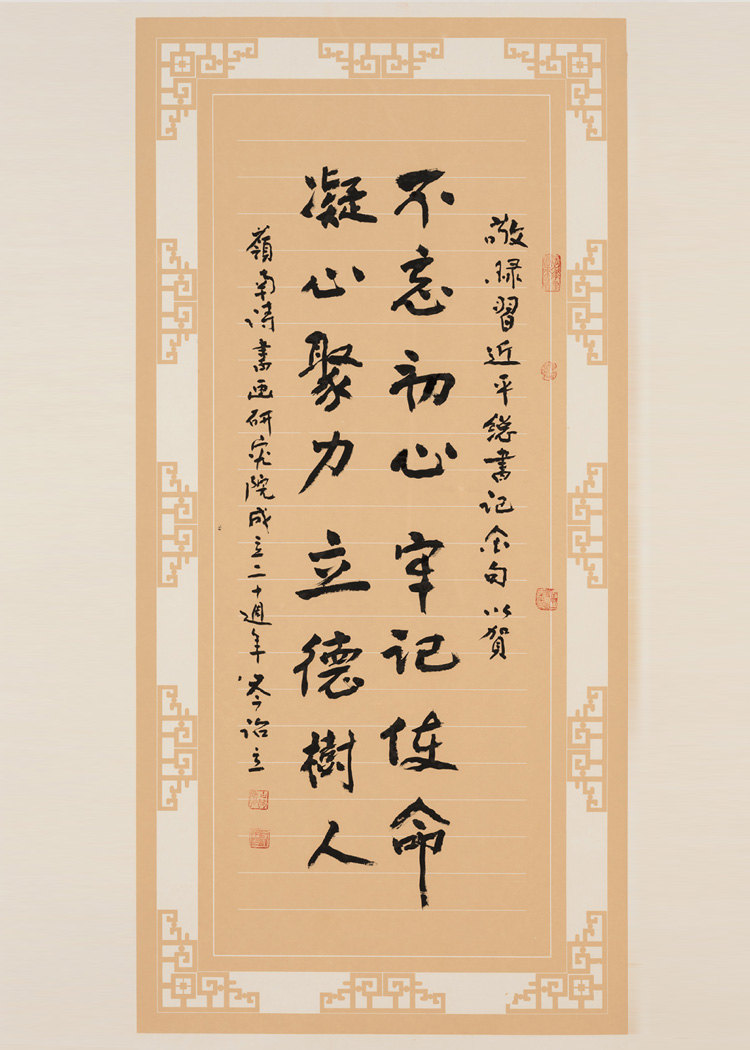 敬録習近平總書記金句以賀
不忘初心牢記使命
凝心聚力立德樹人
嶺南詩書画研究院成立二十週年岑詒立